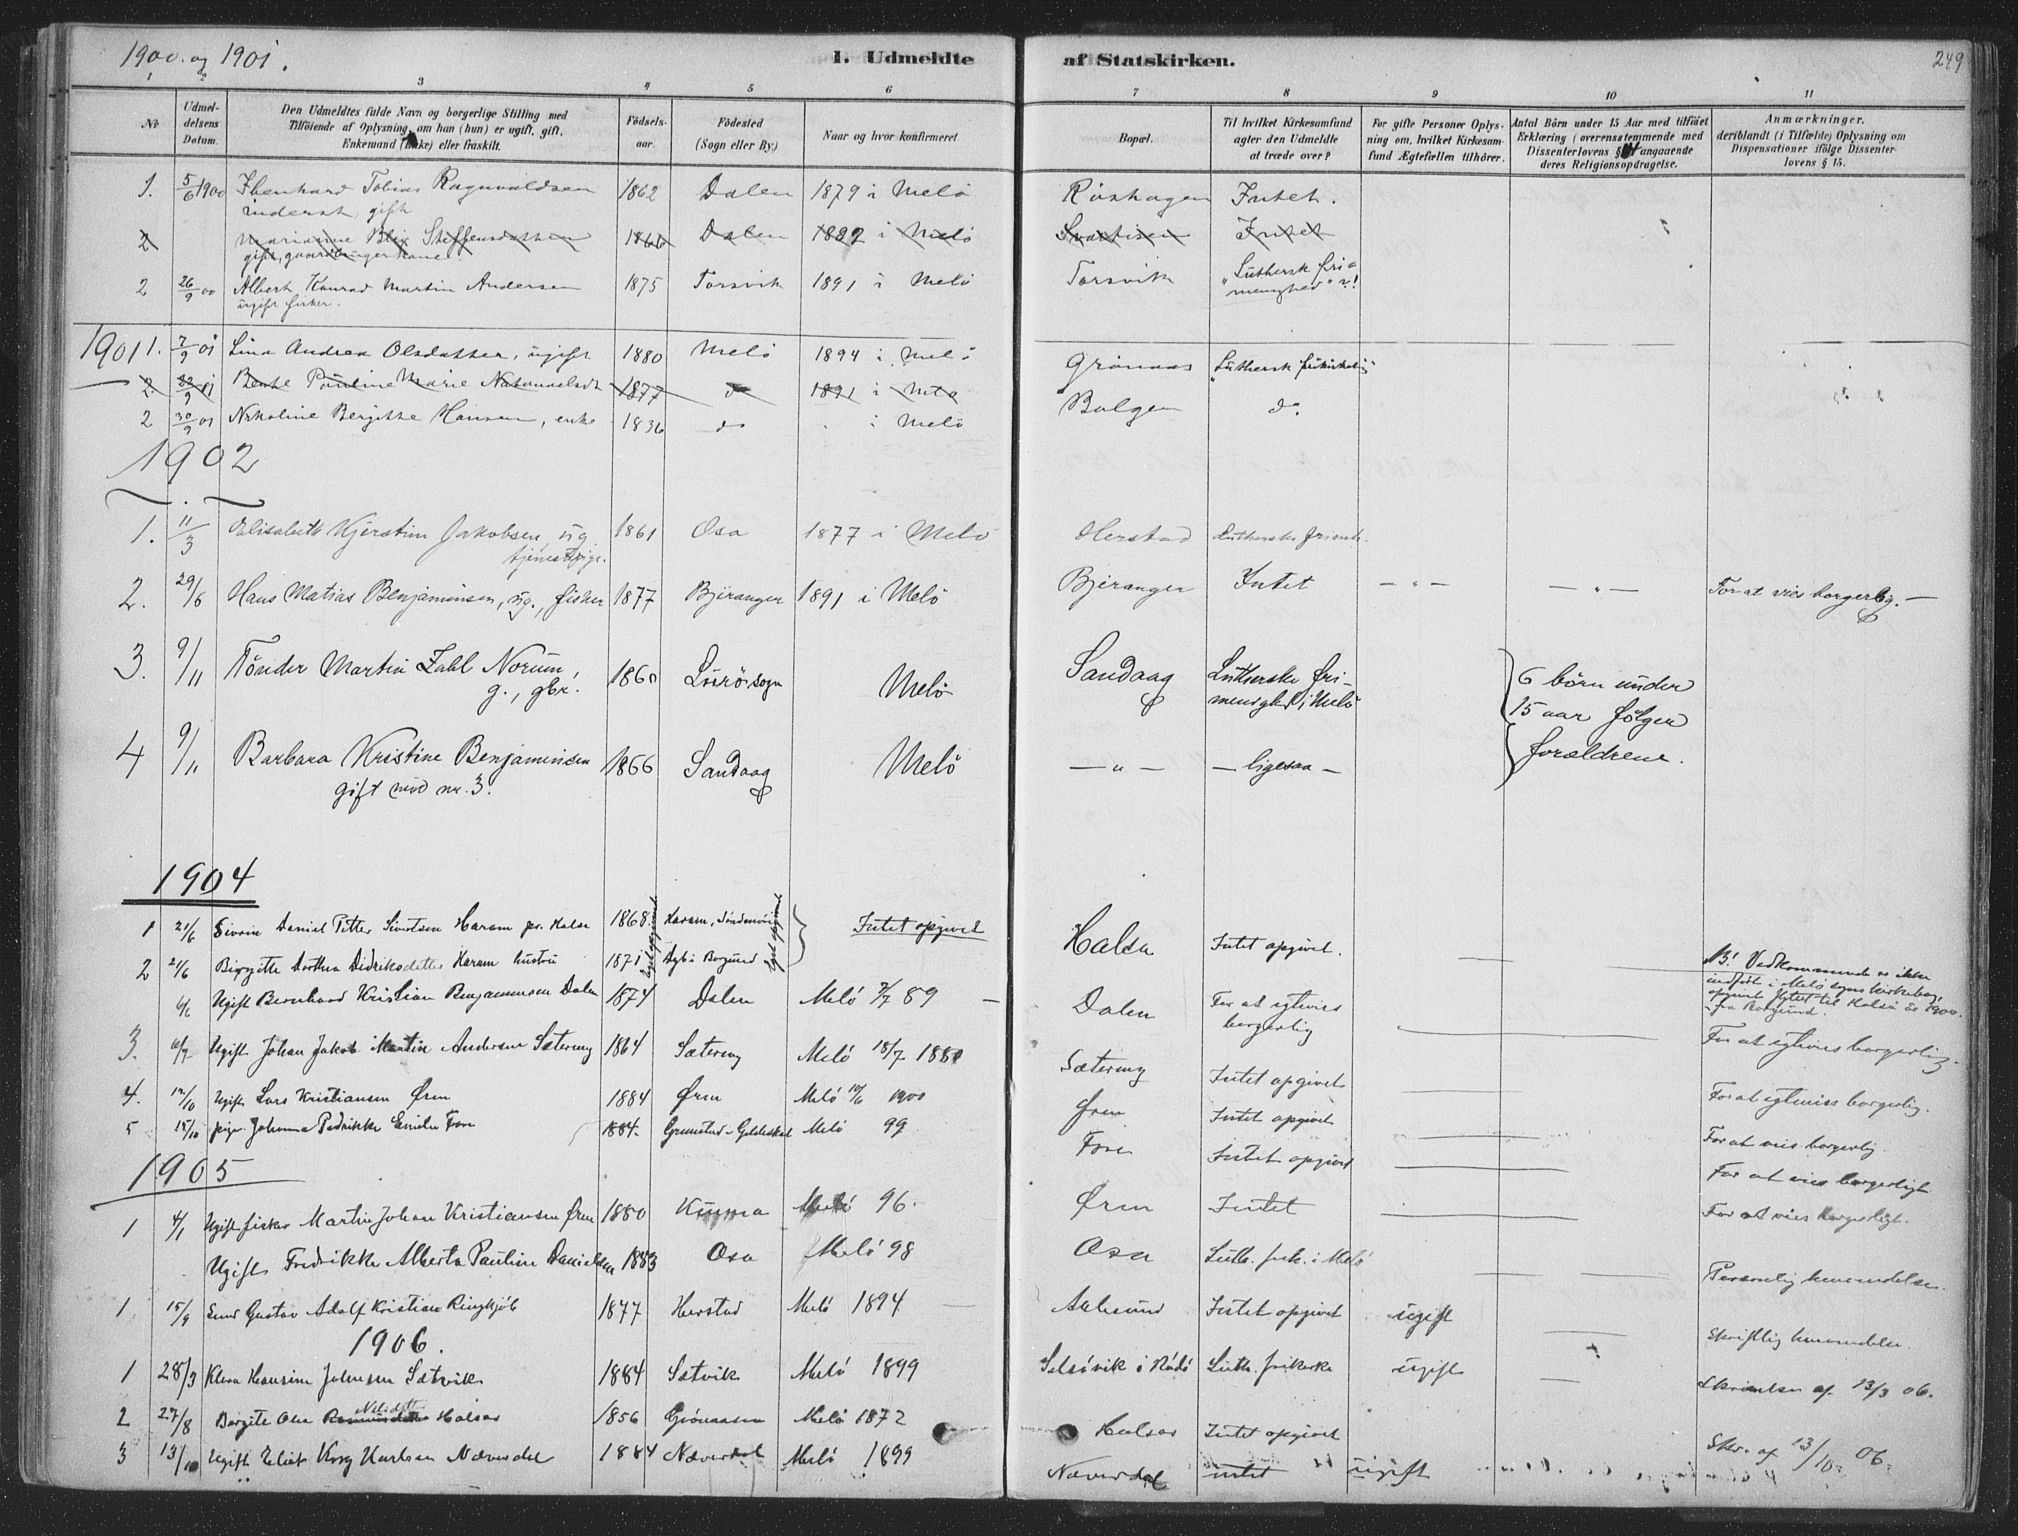 1900. og 1901.
I. Udmeldte af Statskirken.
249
1 2 3 4 5 6 7 8 9 10 11
No
Udmel-
delsens
Datum.
Den Udmeldtes fulde Navn og borgerlige Stilling med
Tilföiende af Oplysning, om han (hun) er ugift, gift,
Enkemand (Enke) eller fraskilt.
Födsels-
aar.
Födested
(Sogn eller By.)
Naar og hvor konfirmeret
Bopæl.
Til hvilket Kirkesamfund
agter den Udmeldte
at træde over?
For gifte Personer Oplys-
ning om, hvilket Kirkesam-
fund Ægtefællen tilhörer.
Antal Börn under 15 Aar med tilföiet
Erklæring (overensstemmende med
Dissenterlovens § angaaende
deres Religionsopdragelse.
Anmærkninger,
deriblandt (i Tilfælde) Oplysning om
Dispensationer ifölge Dissenter-
lovens § 15.
1. 5/6 1900 Ebenhard Tobias Ragnvaldsen 1862 Dalen 1879 i Melö Röshagen Intet.
inderst, gift
2 Marianne Blix Steffensdatter 1866 Dalen 1882 i Melö Svartisen Intet
gift, gaardbrugerkone.
2 26/9 00 Albert Konrad Martin Andersen 1875 Torsvik 1891 i Melö Torsvik "Luthersk fri-
ugift fisker. menighed"?!
1901 1. 7/9 01 Lina Andrea Olsdatter, ugift 1880 Melö 1894 i Melö Grönaas
2. 22/9 01 Bente Pauline Marie 1877 do 1891 i
2 30/9 01 Nikoline Bergitte Hansen, enke 1836 do i Melö Bolgen do
1902
1. 11/3 Elisabeth Kjerstine Jakobsen, ug. 1861 Osa 1877 i Melö Herstad
tjenestpige.
2. 29/6 Hans Matias Benjaminsen, ug., fisker 1877 Bjeranger 1891 i Melö Bjeranger Intet — " — — " — For at vies borgerlig. —
3. 9/11 Tönder Martin Zahl Norum 1860 Luröi sogn Melö Sandaag Lutherske fri- 6 börn under
g., gbr. menighed i Melö 15 aar fölger
4 9/11 Barbara Kristine Benjaminsen 1866 Sandaag Melö — " — — ligesaa — forældrene.
gift med nr. 3.
1904
1 21/6 Sivrin Daniel Petter Sivertsen Haram 1868 Haram, Söndmöre Intet opgivet Halsa Intet opgivet.
2 21/6 Birgitte Dorthea Didriksdatter Haram hustru 1871 i Borgund NB! Vedkommende er ikke
indfört i Melö sogns kirkebog,
opgivet flyttet til Halsa år 1900
fra Borgund.
6/6 Ugift Bernhard Kristian Benjaminsen Dalen 1874 Dalen Melö 7/7 89 — Dalen For at egtevies
borgerlig For at egtevies borgerlig.
3. 6/7 Ugift Johan Jakob Martin Andersen Sætereng 1864 Sætereng Melö 18/7 1880 Sætereng Intet opgivet For at egtevies borgerlig.
4. 12/10 Ugift Lars Kristiansen Ørn 1884 Ørn Melö 10/6 1900 Ørn Intet opgivet For at vies borgerlig.
5 15/10 pige Johanna Fredrikke Emelie Fore 1884. Grimstad i Gildeskål Melö 99 Fore Intet opgivet For at vies borgerligt
1905
1 4/1 Ugift fisker Martin Johan Kristiansen Ørn 1880 Kunna Melö 96. Ørn Intet For at vies borgerligt.
Ugift Fredrikke Alberta Pauline Danielsen 1883 Osa Melö 98 Osa Luth. frik. i Melö Personlig henvendelse.
1 15/9 Gustav Adolf Kristian Ringkjöb 1877 Herstad Melö 1894 Aalesund Intet opgivet ugift Skriftlig henvendelse.
1906.
1 28/3 Klara Hansine Johnsen Sætvik 1884 Sætvik Melö 1899 Selsövik i Rödö Luth. frikirke ugift Skrivelse af 13/3 06.
2 27/8 Bergite Olsa Nilsdatter Halsos 1856 Grönaasen Melö 1872 Halsos Intet opgivet
3 13/10 Ugift Eliot Krog Karlsen Næverdal 1884 Næverdal Melö 1899 Næverdal intet ugift Skr. af 13/10 06.